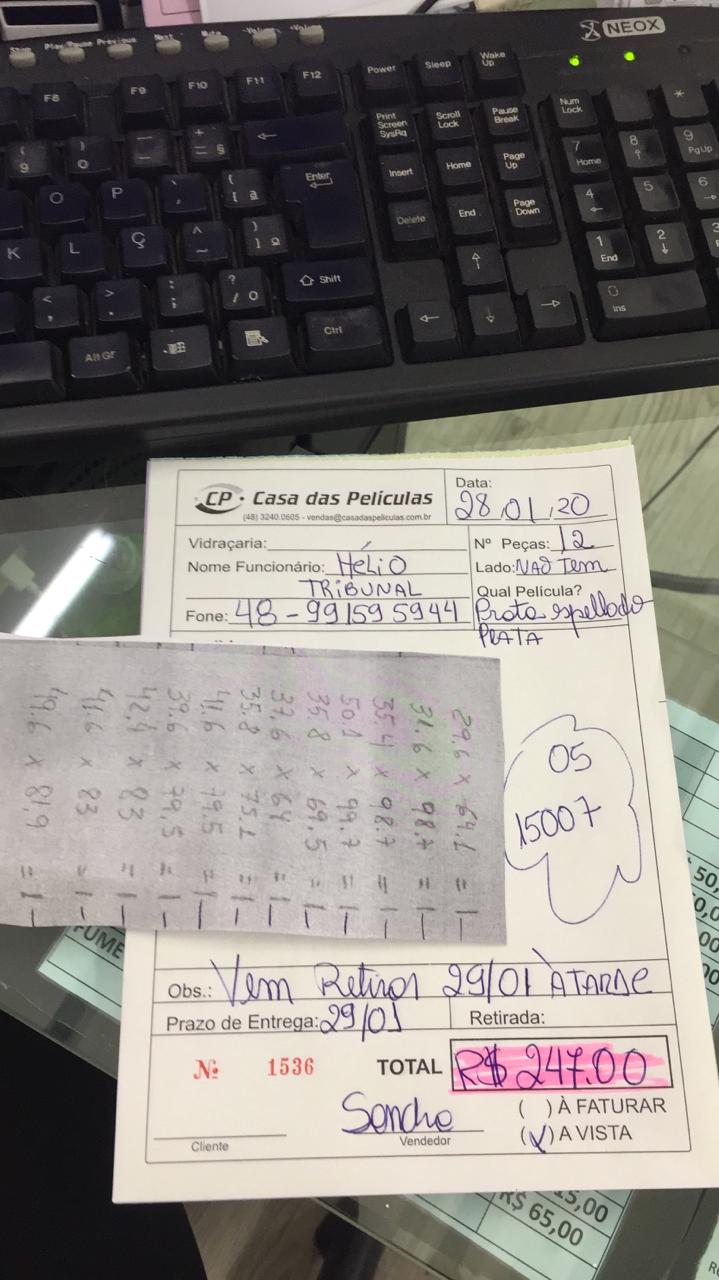 NEOX
Stop Play/Pause Previous Next Mute -Volume +Volume
F8 F9 F10 F11 F12 Power Sleep Wake Up
Print Screen SysRq Scroll Lock Pause Break Num Lock *
Enter Insert Home Page Up 7 Home 8 9 PgUp
O P Delete End Page Down 4 5 6
K L Ç Shift 1 End 2 3
Alt Gr Ctrl 0 Ins
CP Casa das Películas
(48) 3240.0605 - vendas@casadaspeliculas.com.br
Data:
28/01/20
Vidraçaria:
Nº Peças: 12
Nome Funcionário: HéLiO
Lado: NAO Tem
TRIBUNAL
Qual Película?
Fone: 48-991595944
Prata espellado
PLATA
29.6 x 64.2 = 1
31.6 x 98.7 = 1
35.4 x 98.7 = 1
50.1 x 99.7 = 1
35.8 x 69.5 = 1
37.6 x 64 = 1
35.8 x 75.2 = 1
41.6 x 79.5 = 1
39.6 x 79.5 = 1
42.4 x 83 = 1
41.6 x 83 = 1
49.6 x 81.9 = 1
05
15007
FUME
Obs.: Vem Retirar 29/01 À TARDE
Prazo de Entrega: 29/01
Retirada:
Nº 1536
TOTAL R$ 247.00
( ) À FATURAR
Cliente
Vendedor
(✓) A VISTA
15,00
R$ 65,00